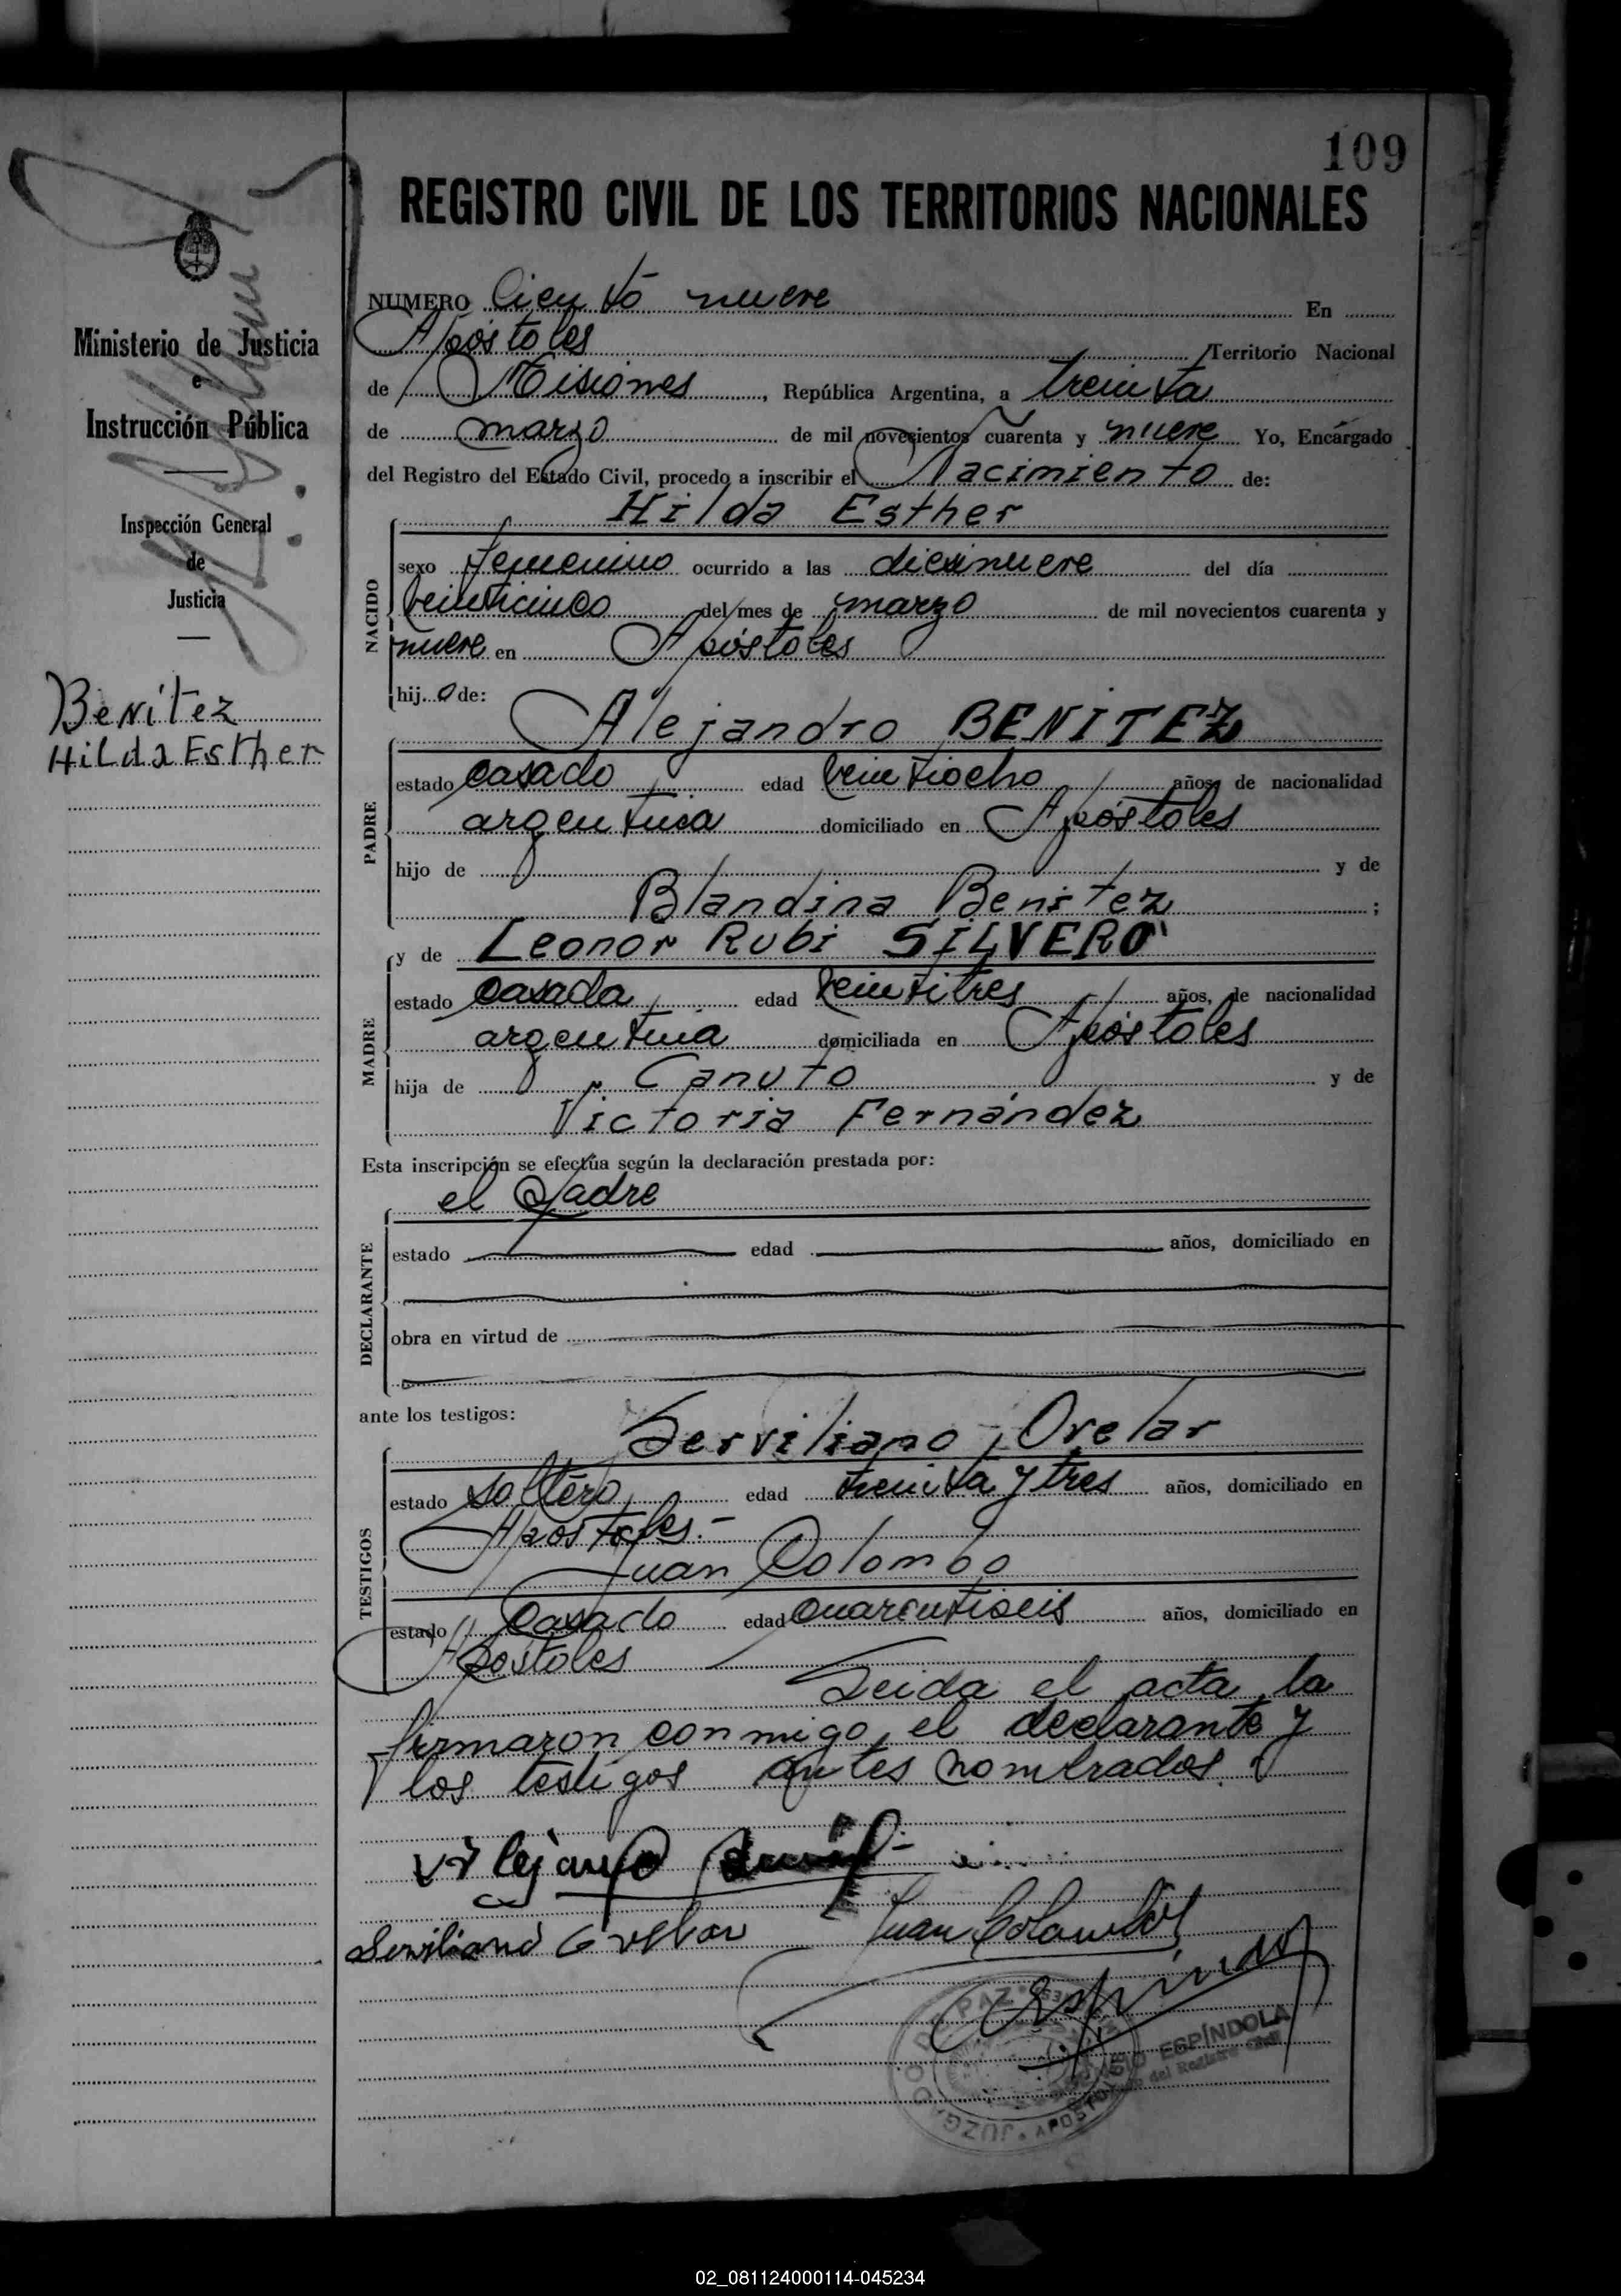 109
REGISTRO CIVIL DE LOS TERRITORIOS NACIONALES
Ministerio de Justicia
e
Instrucción Pública
Inspección General
de
Justicia
Benitez
Hilda Esther
NUMERO Ciento nueve En
Apóstoles Territorio Nacional
de Misiones, República Argentina, a treinta
de marzo de mil novecientos cuarenta y nueve Yo, Encargado
del Registro del Estado Civil, procedo a inscribir el Nacimiento de:
Hilda Esther
NACIDO
sexo femenino ocurrido a las diecinueve del día
veinticinco del mes de marzo de mil novecientos cuarenta y
nueve en Apóstoles
hij.a de:
Alejandro BENITEZ
PADRE
estado casado edad veintiocho años, de nacionalidad
argentina domiciliado en Apóstoles
hijo de y de
Blandina Benitez ;
y de Leonor Rubi SILVERO
MADRE
estado casada edad veintitres años, de nacionalidad
argentina domiciliada en Apóstoles
hija de Canuto y de
Victoria Fernández
Esta inscripción se efectúa según la declaración prestada por:
el Padre
DECLARANTE
estado edad años, domiciliado en
obra en virtud de
ante los testigos:
Serviliano Ovelar
TESTIGOS
estado soltero edad treinta y tres años, domiciliado en
Apostoles.-
Juan Colombo
estado Casado edad cuarentiseis años, domiciliado en
Apóstoles
Leida el acta, la
firmaron conmigo, el declarante y
los testigos antes nombrados.
Serviliano Ovelar
Juan Colombo
JUZGADO DE PAZ
APOSTOLES
ESPÍNDOLA
del Registro Civil
02_081124000114-045234